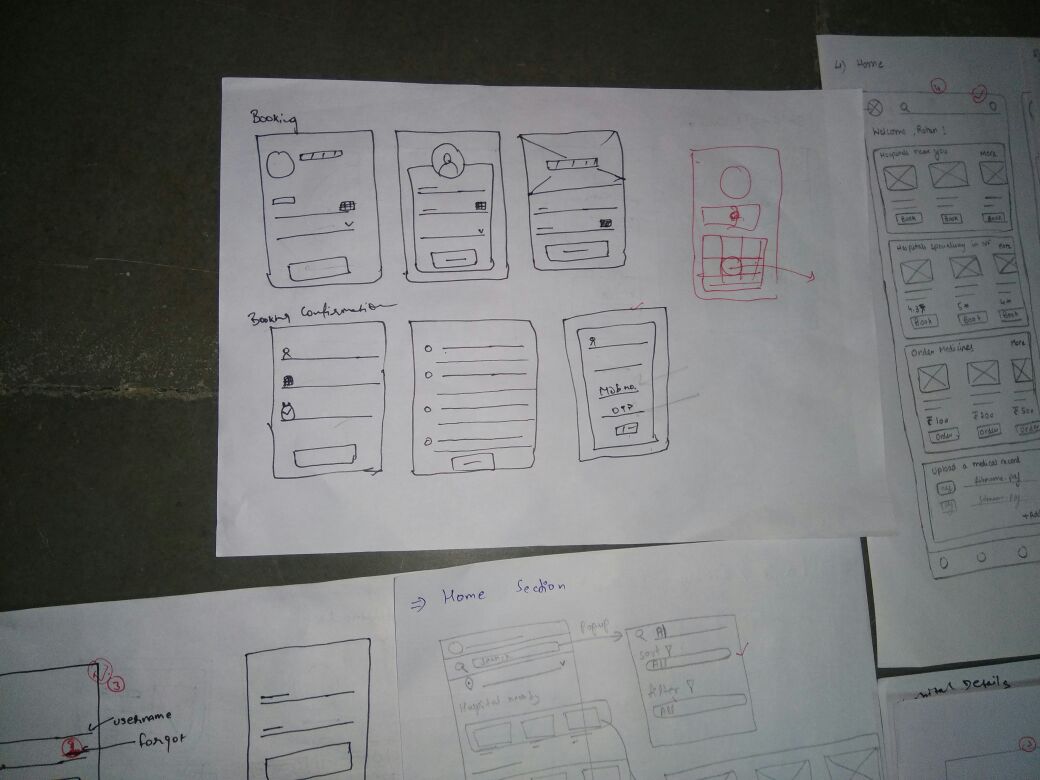 Booking
Booking Confirmation
Mob no.
OTP
4) Home
4
Welcome, Rohan !
Hospitals near you
More
Book
Book
Book
Hospitals specialising in
More
Book
Book
Book
Order Medicines
More
₹100
₹200
₹500
Order
Order
Order
Upload a medical record
filename.pdf
filename.pdf
+Add
⇒ Home Section
Popup
Search
All
sort
All
filter
All
Hospital nearby
3
username
1
forgot
Details
3